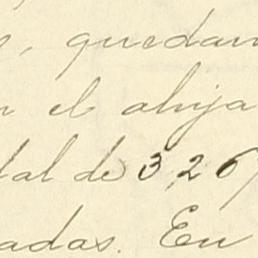 , quedan
el ahija
tal de 3,26
adas. En